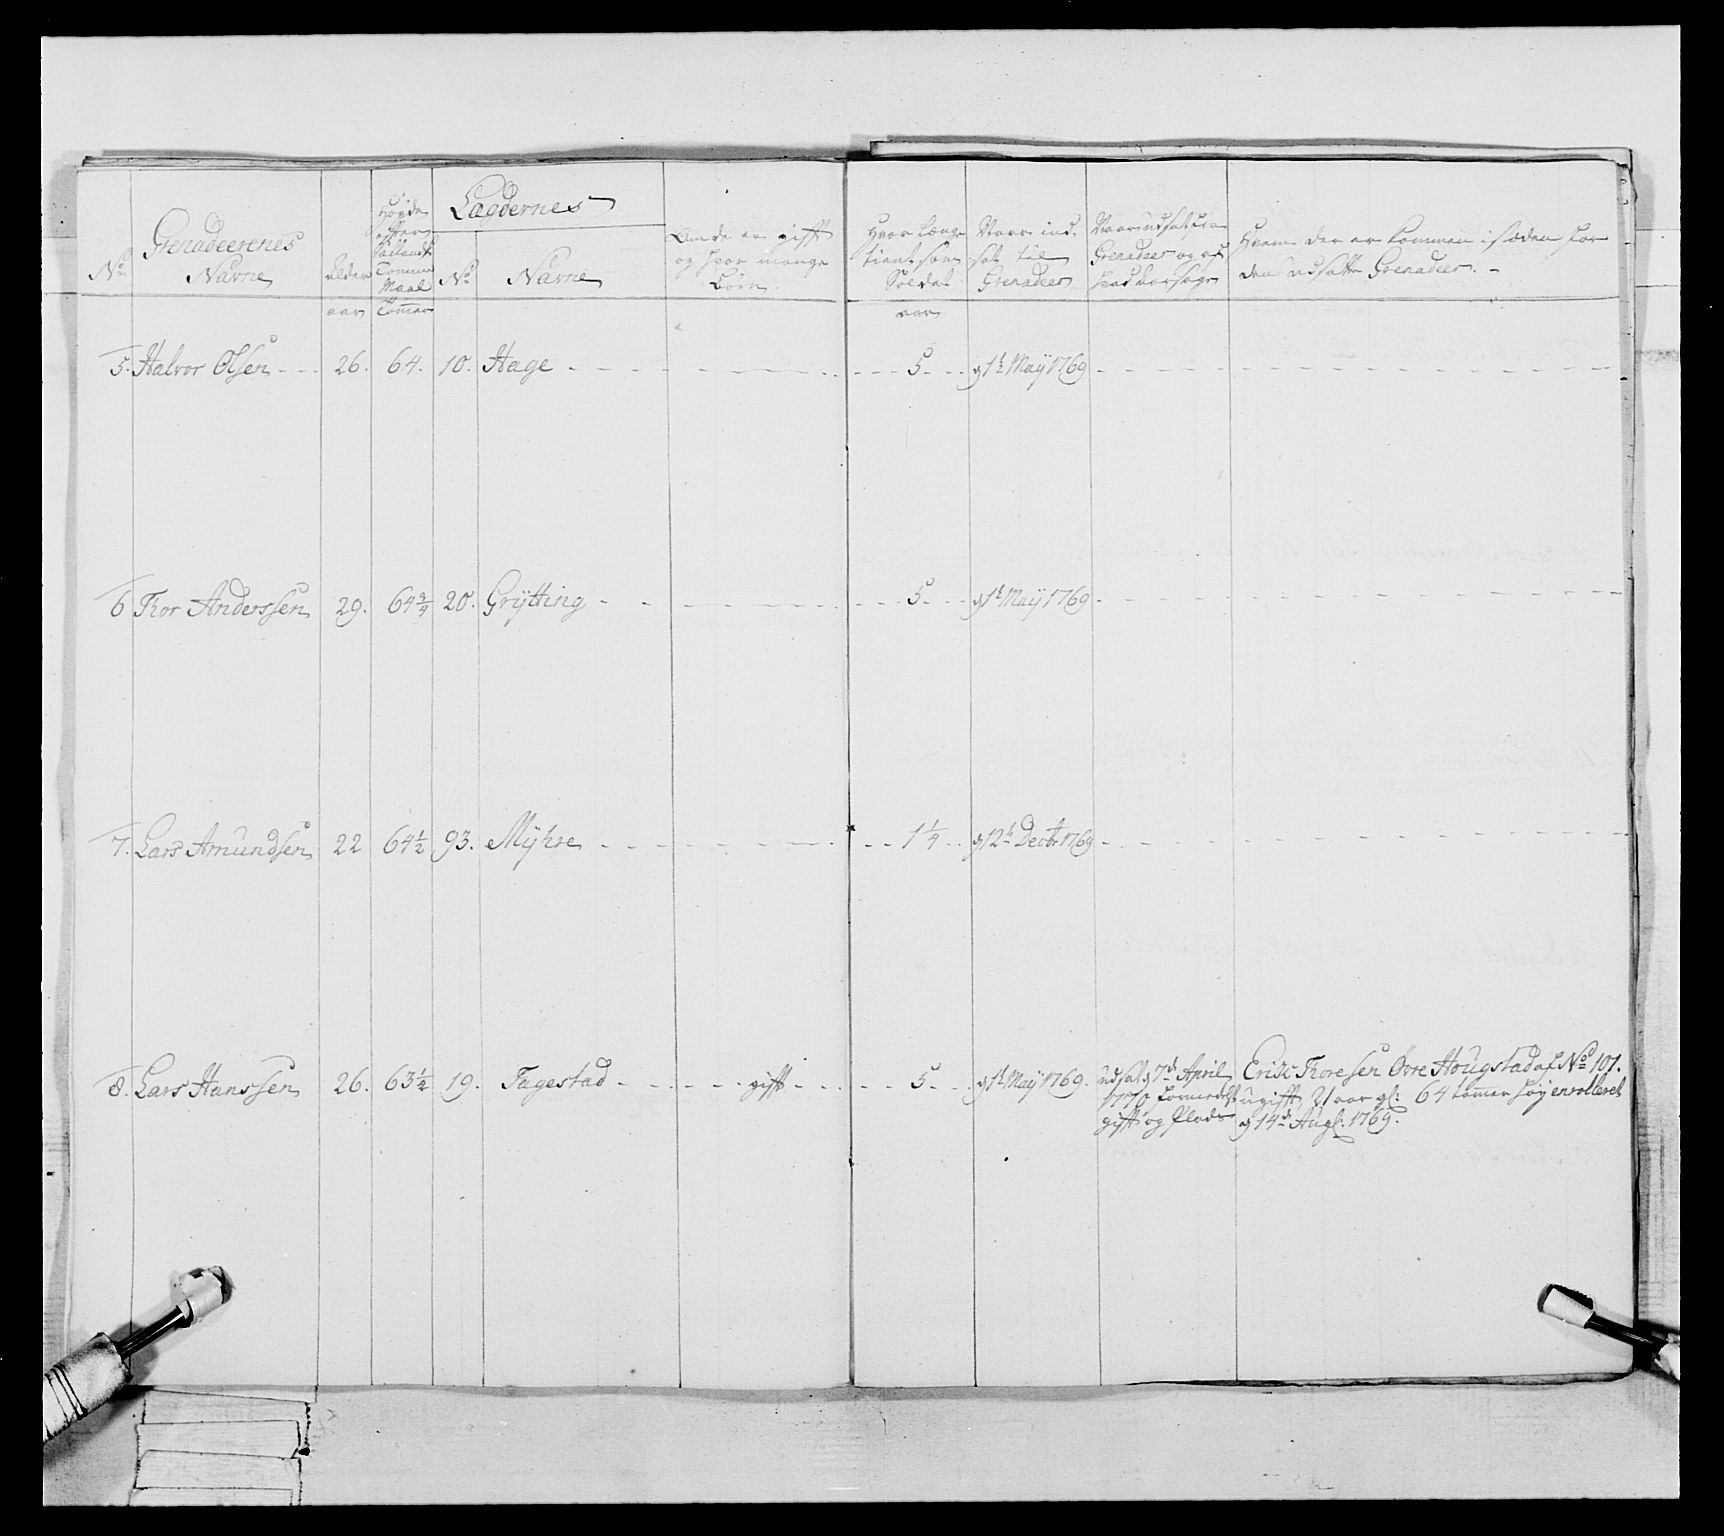 No
Grenadeerenes
Navne
Alder
aar
Høyde
efter
Sællands
Tomme
Maal
Tommer
Lægdernes
No
Navne
Om de er gifft
og hvor mange
Børn
Hvor længe
tient som
Soldat
aar
Naar ind-
sat til
Grenadeer
Naar udsat fra
Grenadeer og af
hvad aarsage
Hvem der er kommen i stæden for
den udsatte Grenadeer.
5. Halvor Olsen 26. 64. 10. Hage 5. 1t May 1769
6 Thor Anderssen 29. 64 3/4 20. Grytting 5. 1t May 1769
7. Lars Amundsen 22 64 1/2 93. Myhre 1 1/4 12t Decbr 1769
8. Lars Hanssen 26. 63 1/2 19. Fagestad gifft 5. 1t May 1769. udsat 7de April Erik Thoresen Øvre Hougstad af No 101.
ugifft 21 aar gl: 64 tommer høy enrolleret
gifft og Plads 14de Augl. 1769.